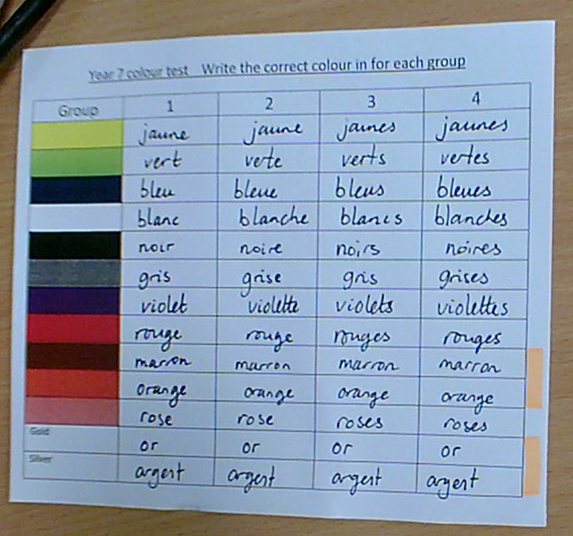 Year 7 colour test Write the correct colour in for each group
Group 1 2 3 4
jaune jaune jaunes jaunes
vert verte verts vertes
bleu bleue bleus bleues
blanc blanche blancs blanches
noir noire noirs noires
gris grise gris grises
violet violette violets violettes
rouge rouge rouges rouges
marron marron marron marron
orange orange orange orange
rose rose roses roses
Gold or or or or
Silver argent argent argent argent